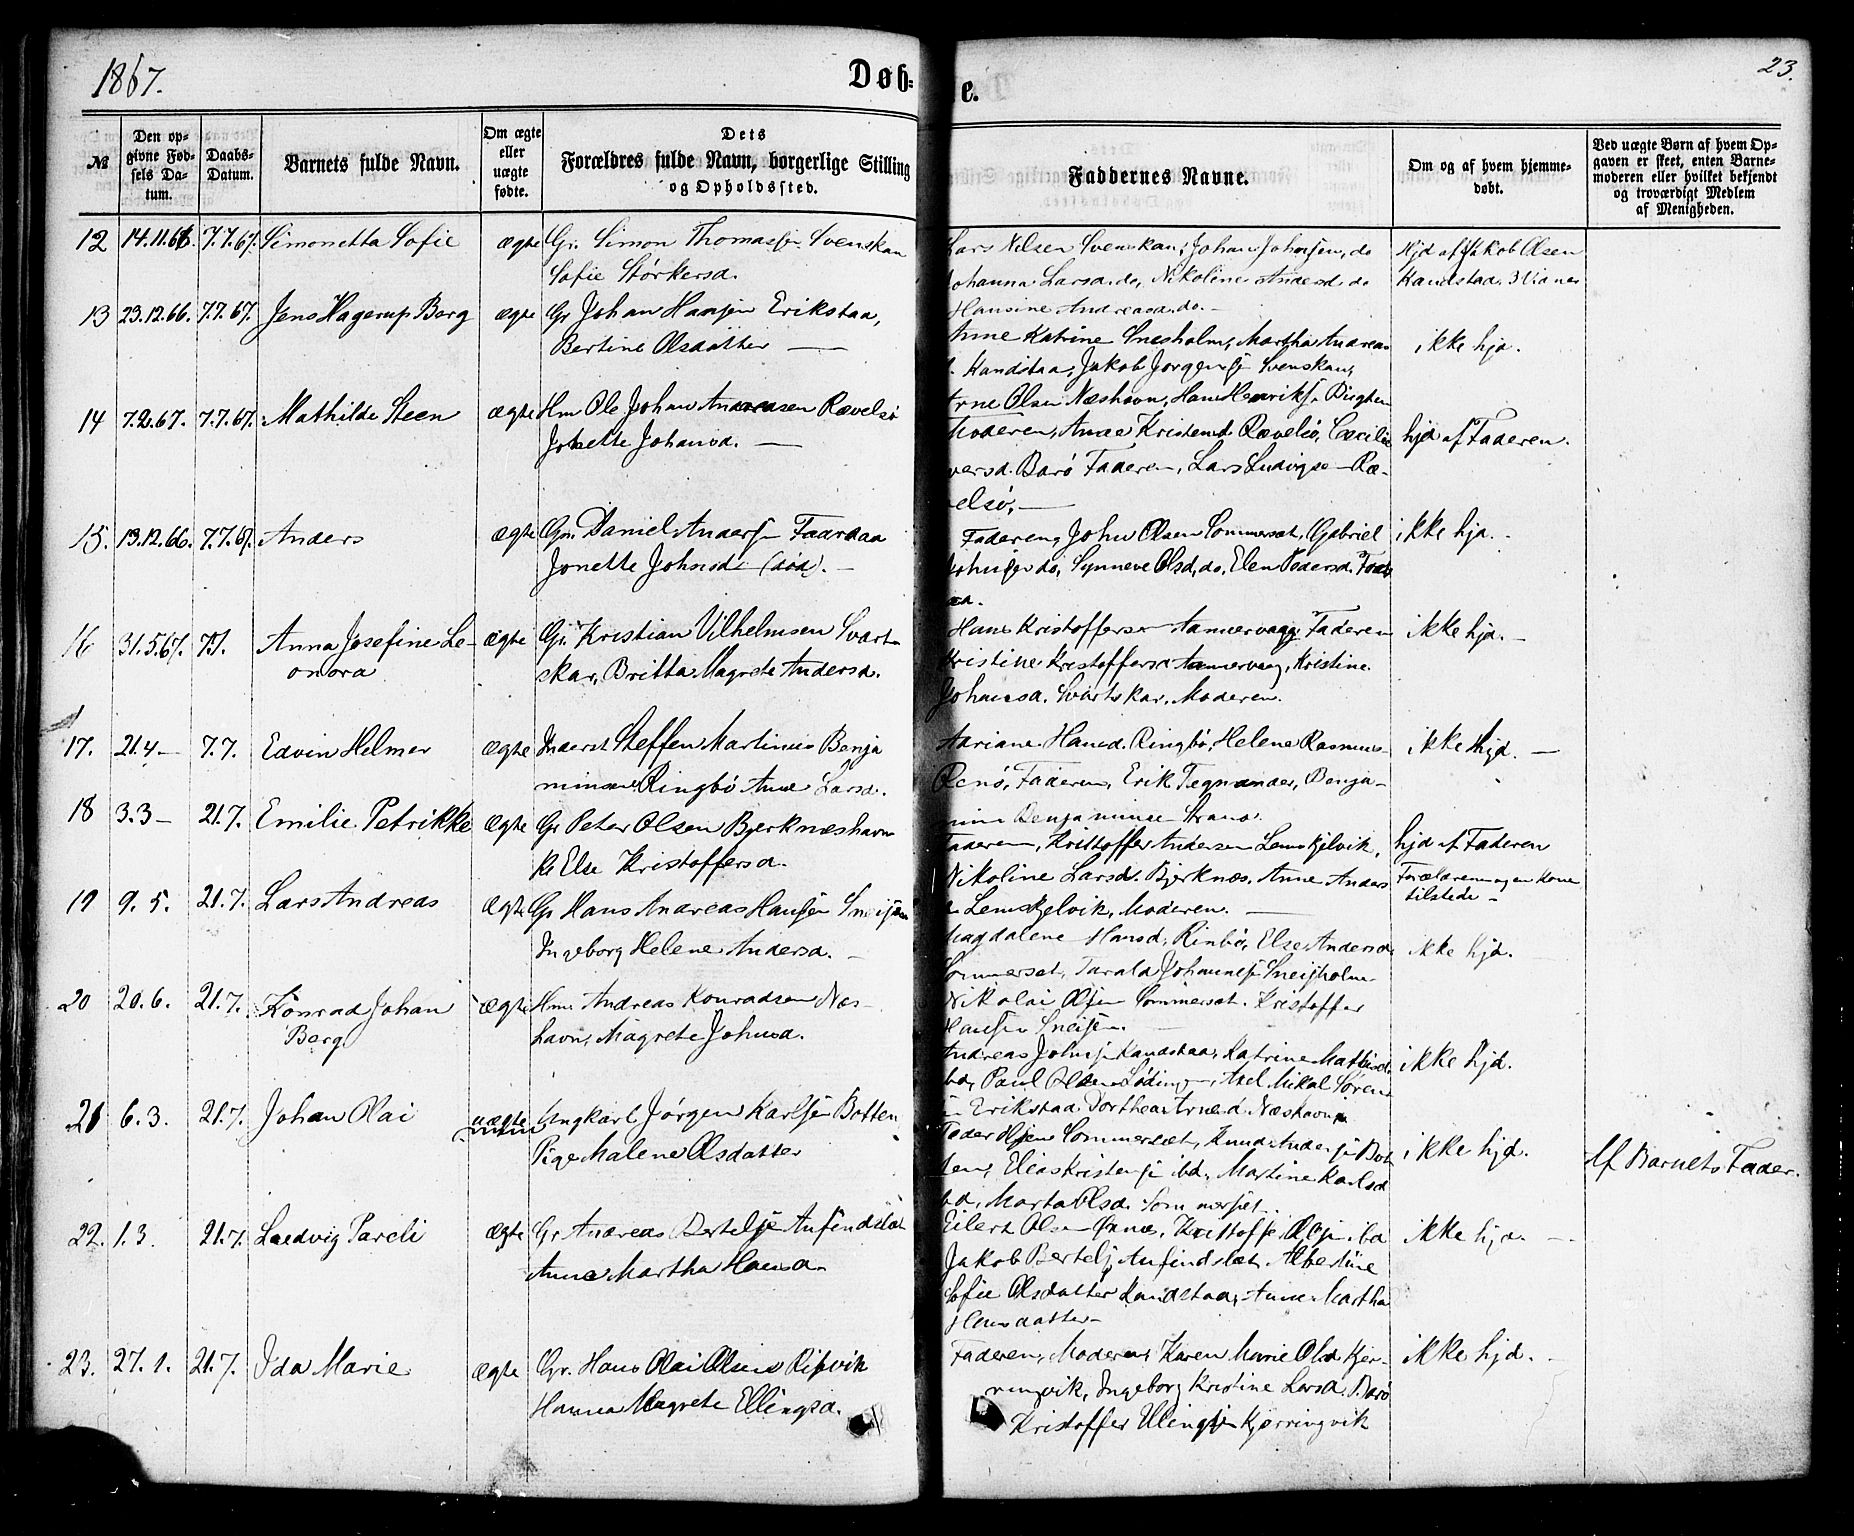 1867.
Døb=
e.
23.
№
Den op-
givne Fød-
sels Da-
tum.
Daabs-
Datum.
Barnets fulde Navn.
Om ægte
eller
uægte
fødte.
Dets
Forældres fulde Navn, borgerlige Stilling
og Opholdssted.
Faddernes Navne.
Om og af hvem hjemme-
døbt.
Ved uægte Børn af hvem Op-
gaven er skeet, enten Barne-
moderen eller hvilket bekjendt
og troværdigt Medlem
af Menigheden.
12 14.11.66. 7.7.67. Simonetta Sofie ægte Gr. Simon Thomassen Svenskan
Sofie Størkersd.
Lars Nilsen Svenskan, Johan Johnsen, do
Johanna Larsd. do, Nikoline Andersd. do
Hansine Andreasd. do. -
Hjd af Jakob Olsen
Kandstad
13 23.12.66. 7.7.67. Jens Hagerup Borg ægte Gr Johan Hansen Erikstaa,
Bertine Olsdatter —
Anne Katrine Snesholm, Martha Andreas
Kandstaa, Jakob Jørgensen Svenskan,
Arne Olsen Næshavn, Hans Henriks.
ikke hjd.
14 7.2.67. 7.7.67. Mathilde Steen ægte Hm Ole Johan Andreasen Rævelsø
Jonette Johansd. —
Moderen, Anne Kristensd Rævelsø, Cæcilie
versd. Barø Faderen, Lars Ludvigsen Ræ-
velsø, —
hjd af Faderen.
15. 13.12.66. 7.7.67. Anders ægte Gr. Daniel Anders. Taaraaa
Jonette Johnsd (død). -
Faderen, John Olsen Sommerset, Gabriel
Johnsen do, Synneve Olsd, do, Elen Pedersd.
ikke hjd.
16 31.5.67. 7.7. Anna Josefine Le-
onora
ægte Gr. Kristian Vilhelmsen Svart-
skar, Britta Magrete Andersd.
Hans Kristoffersen Aannervaag, Faderen
Kristine Kristoffersd Aannervaag, Kristine
Johansd. Svartskar, Moderen.
ikke hjd. -
17. 21.4 — 7.7. Edvin Helmer ægte Inderst Steffen Martinus Benja
minsen Ringbø Anne Larsd.
Adriane Hansd. Ringbø, Helene Rasmus-
Renø, Faderen, Erik Tegnander, Benja-
min Benjaminsen
ikke hjd. —
18 3.3 — 21.7. Emilie Petrikke ægte Gr Peter Olsen Bjerknæshavn
K. Else Kristoffersd.
Faderen, Kristoffer Andersen Lemskjelvik,
Nikoline Larsd. Bjerknæs, Anne Anders
Lemskjelvik, Moderen. —
hjd af Faderen
Forældrene og en Kone
tilstede -
19 9.5. 21.7. Lars Andreas ægte Gr Hans Andreas Hansen Sneisen
Ingeborg Helene Andersd. -
Magdalene Hansd. Rinbø, Else Andersd.
Sommerset, Tarald Johannes. Sneisholm
Nikolai Olsen Sommerset. Kristoffer
Hansen Sneisen. —
ikke hjd.
20 20.6. 21.7. Konrad Johan
Berg
ægte Hm. Andreas Konradsen Næs-
havn, Magrete Johnsd.
Andreas Johnsen Kandstaa, Katrine Mathisd.
Paul Olsen Axel Mikal Søren
Erikstaa, Dorthea Arned. Næshavn
ikke hjd.
21 6.3. 21.7. Johan Olai uægte Ungkarl Jørgen Karlsen Botten
Pige Malene Olsdatter
Peder Olsen Sommerset, Knud Anders. Bot
ten, Elias Kristens. ibd, Martine Karlsd
ibd, Marta Olsd. Sommerset.
ikke hjd.
Af Barnets Fader.
22. 1.3. 21.7. Ludvig Pareli ægte Gr Andreas Bertels. Anfindslet
Anne Martha Hansd.
Eilert Olsen Kristoffer Olsen ibd
Jakob Bertels. Anfindslet, Albertine
Sofie Olsdatter Kandstaa, Anne Martha
Hansdatter -
ikke hjd. -
23. 27.1. 21.7. Ida Marie ægte Gr. Hans Olai Olsens Ripvik
Hanna Magrete Ellingsd.
Faderen, Moderen, Karen Marie Olsd Kjer-
ringvik, Ingeborg Kristine Larsd. Barø
Kristoffer Kjerringvik
ikke hjd.